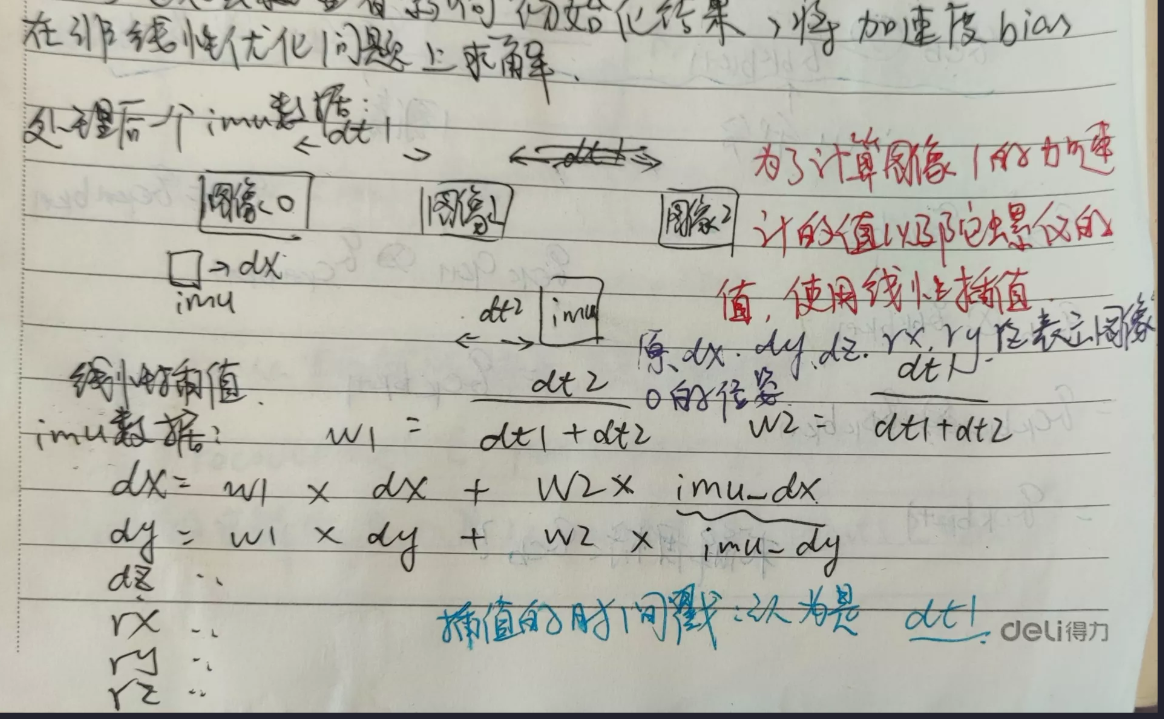 初始化结果,将加速度bias
在非线性优化问题上求解.
处理后一个imu数据:
dt1
dt1
图像0
图像1
图像2
为了计算图像1的加速
计的值以及陀螺仪的
值,使用线性插值
imu
dx
dt2
imu
原dx.dy,dz.rx,ry,rz表示图像
0的位姿
线性插值.
imu数据:
w1 = dt2 / dt1+dt2
w2 = dt1 / dt1+dt2
dx = w1 × dx + w2 × imu_dx
dy = w1 × dy + w2 × imu_dy
dz ..
rx ..
ry ..
rz ..
插值的时间戳:认为是 dt1.
deli得力